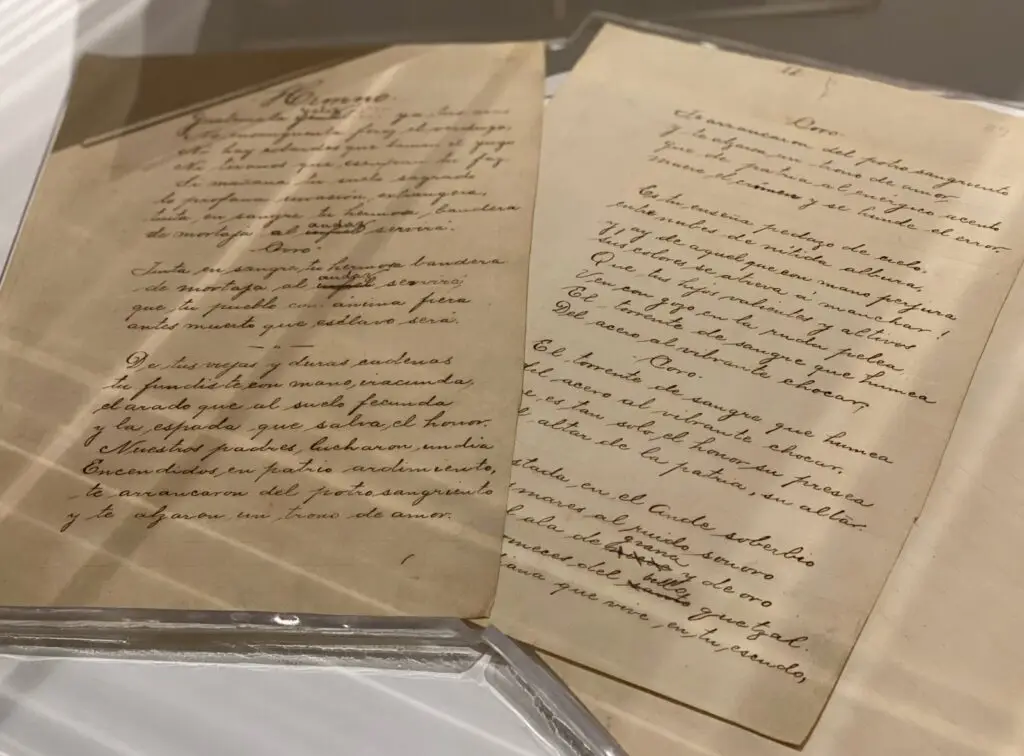 Himno.
Guatemala feliz ya tus aras
no ensangrienta feroz el verdugo,
No hay cobardes que laman el yugo
Ni tiranos que escupan tu faz
Si mañana tu suelo sagrado
lo profana invasión extrangera,
tinta en sangre tu hermosa bandera
de mortaja al audaz servirá.
Coro.
Tinta en sangre tu hermosa bandera
de mortaja al audaz servirá;
que tu pueblo con ánima fiera
antes muerto que esclavo será.
De tus viejas y duras cadenas
tu fundiste con mano iracunda,
el arado que al suelo fecunda
y la espada que salva el honor.
Nuestros padres, lucharon un día
Encendidos, en patrio ardimiento,
te arrancaron del potro sangriento
y te alzaron un trono de amor.
Coro.
Te arrancaron del potro sangriento
y te alzaron un trono de amor,
que de patria al enérgico acento
muere el crimen y se hunde el error.
Es tu enseña pedazo de cielo,
entre nubes de nítida albura,
y ¡ay de aquel que con mano perjura
sus colores se atreva á manchar!
Que tus hijos valientes y altivos
Ven con gozo en la ruda pelea
El torrente de sangre que humea
Del acero al vibrante chocar,
Coro.
El torrente de sangre que humea
del acero al vibrante chocar.
e, es tan solo, el honor, su presea
altar de la patria, su altar.
stada, en el Ande soberbio
mares al ruido sonoro
l ala de grana y de oro
meces del bello quetzal.
iana que vive, en tu, escudo,